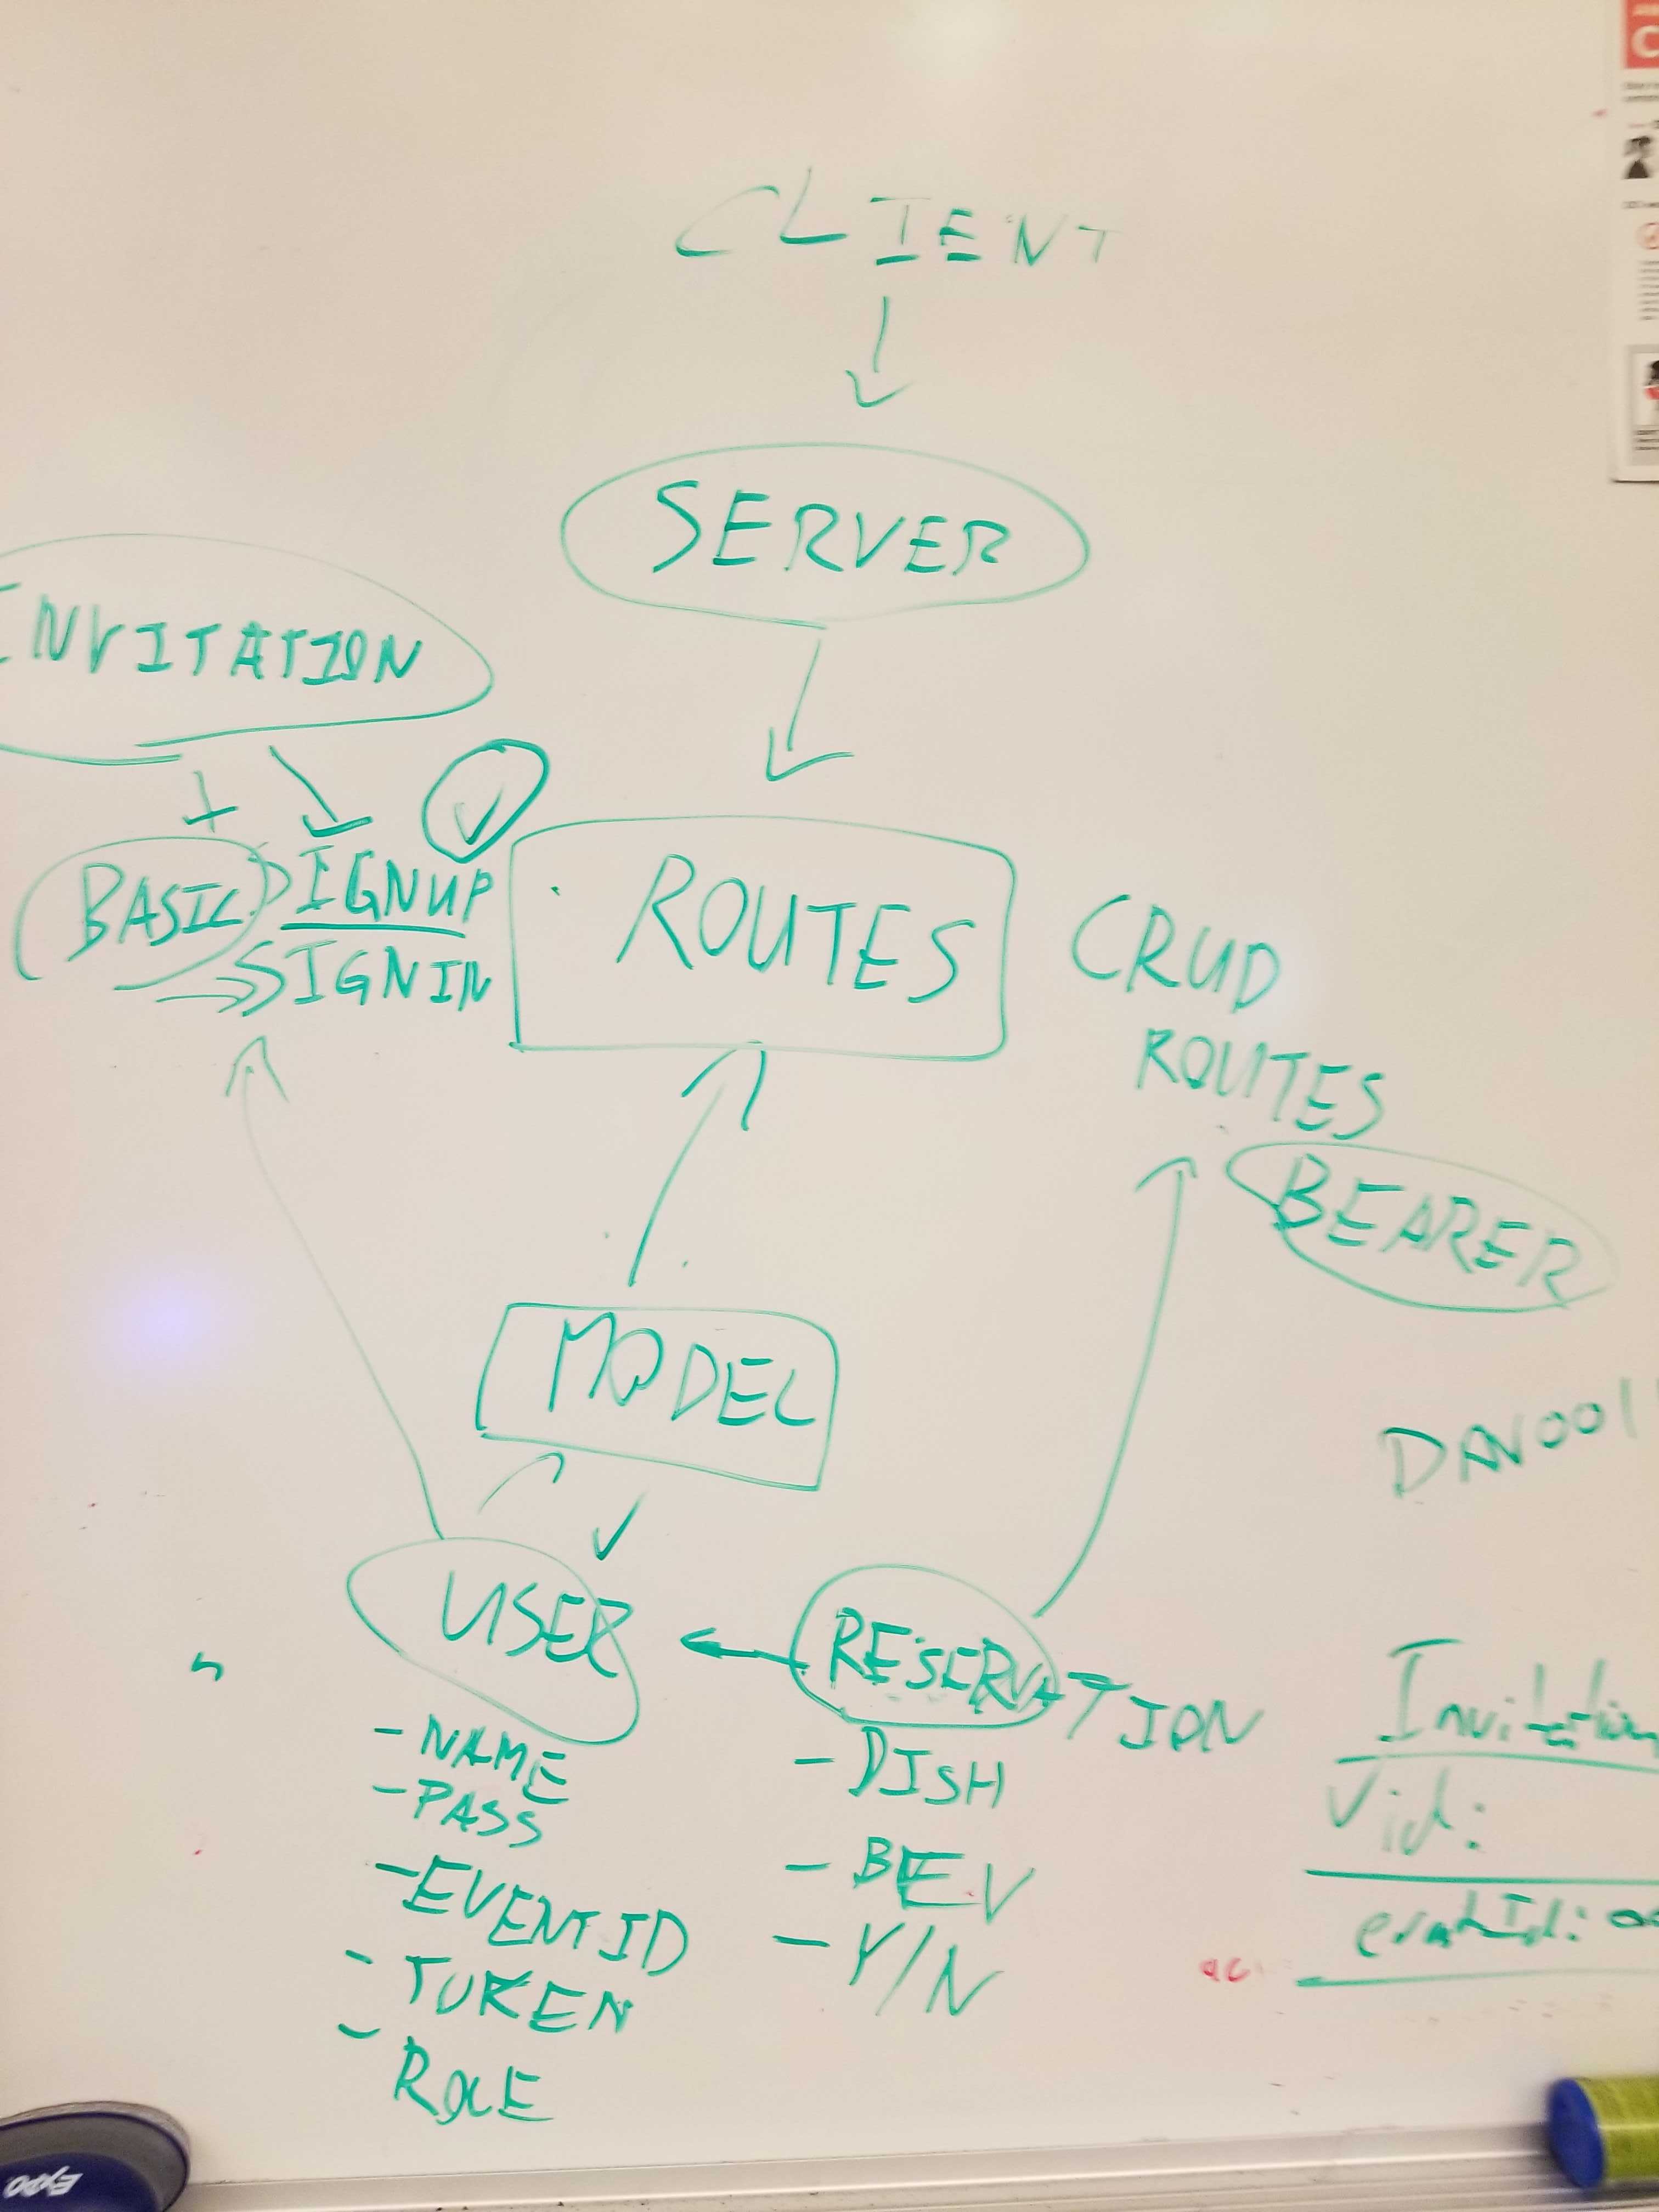 CLIENT
SERVER
INVITATION
BASIC SIGNUP
SIGNIN
ROUTES
CRUD
ROUTES
BEARER
MODEL
USER
- NAME
- PASS
- EVENTID
- TOKEN
- ROLE
RESERVATION
- DISH
- BEV
- Y/N
Invitation
id:
eventId:
Expo